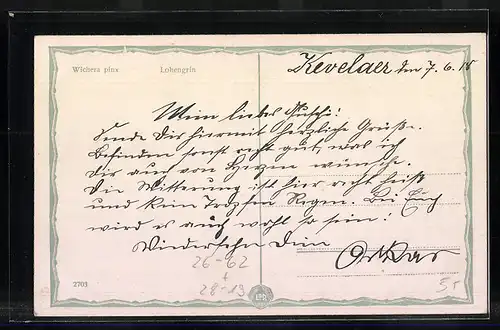 Wichera pinx Lohengrin
Kevelaer den 7.6.18
Mein liebes
Sende Dir hiermit herzliche Grüße.
Befinden sonst recht gut, was ich
Dir auch von Herzen wünsche.
Die Witterung ist hier recht heiß
und kein Tropfen Regen. Bei Euch
wird es auch wohl so sein!
Wiedersehn Dein
Oskar
26-62
+
28-13
2703